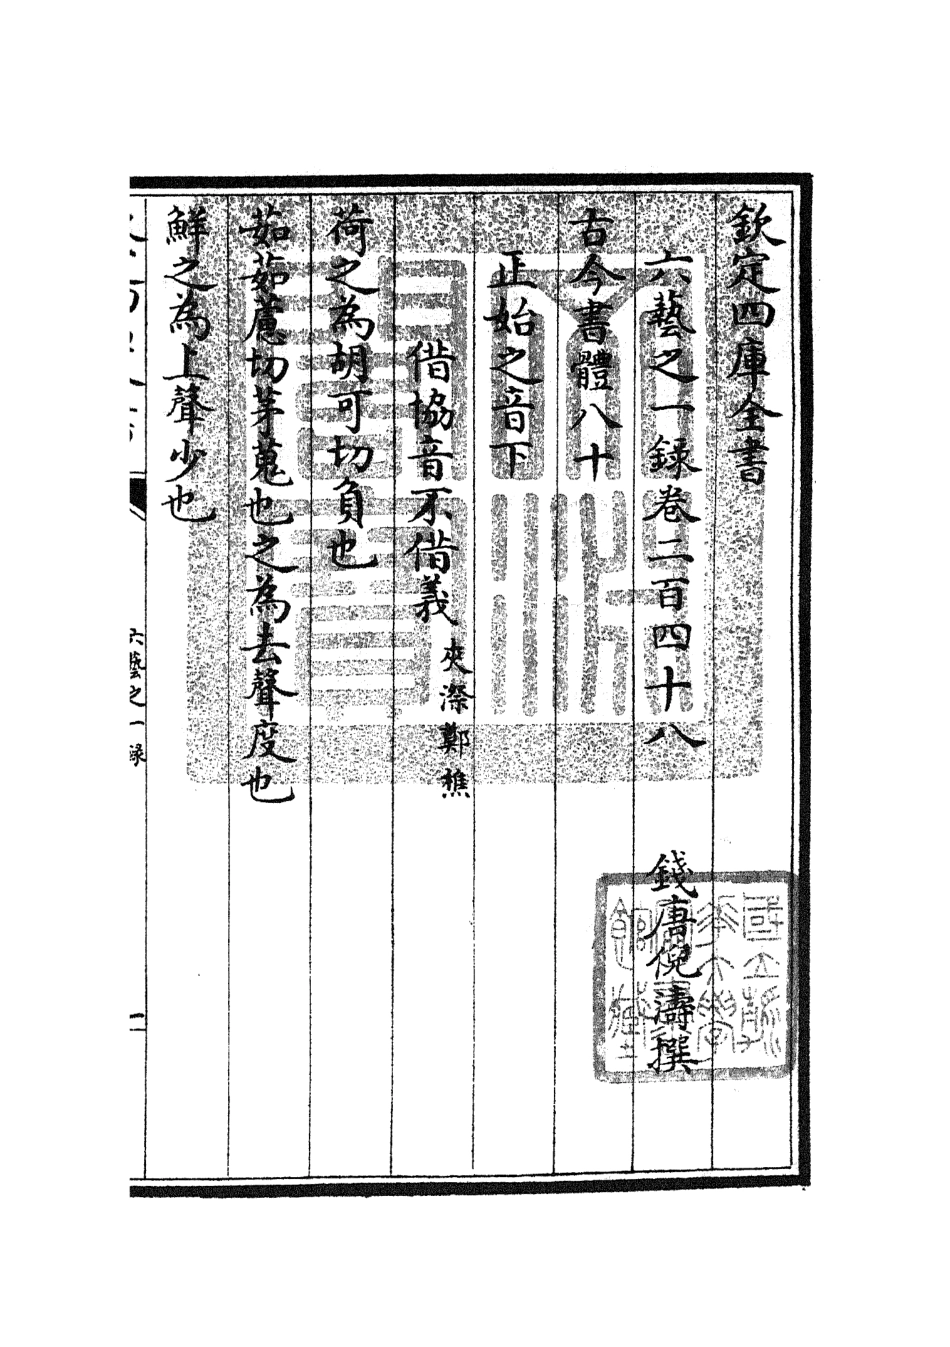 欽定四庫全書
六藝之一錄卷二百四十八
錢唐倪濤撰
古今書體八十
正始之音下
借協音不借義 夾漈鄭樵
荷之為胡可切負也
茹茹藘切茅蒐也之為去聲度也
鮮之為上聲少也
六藝之一錄
一